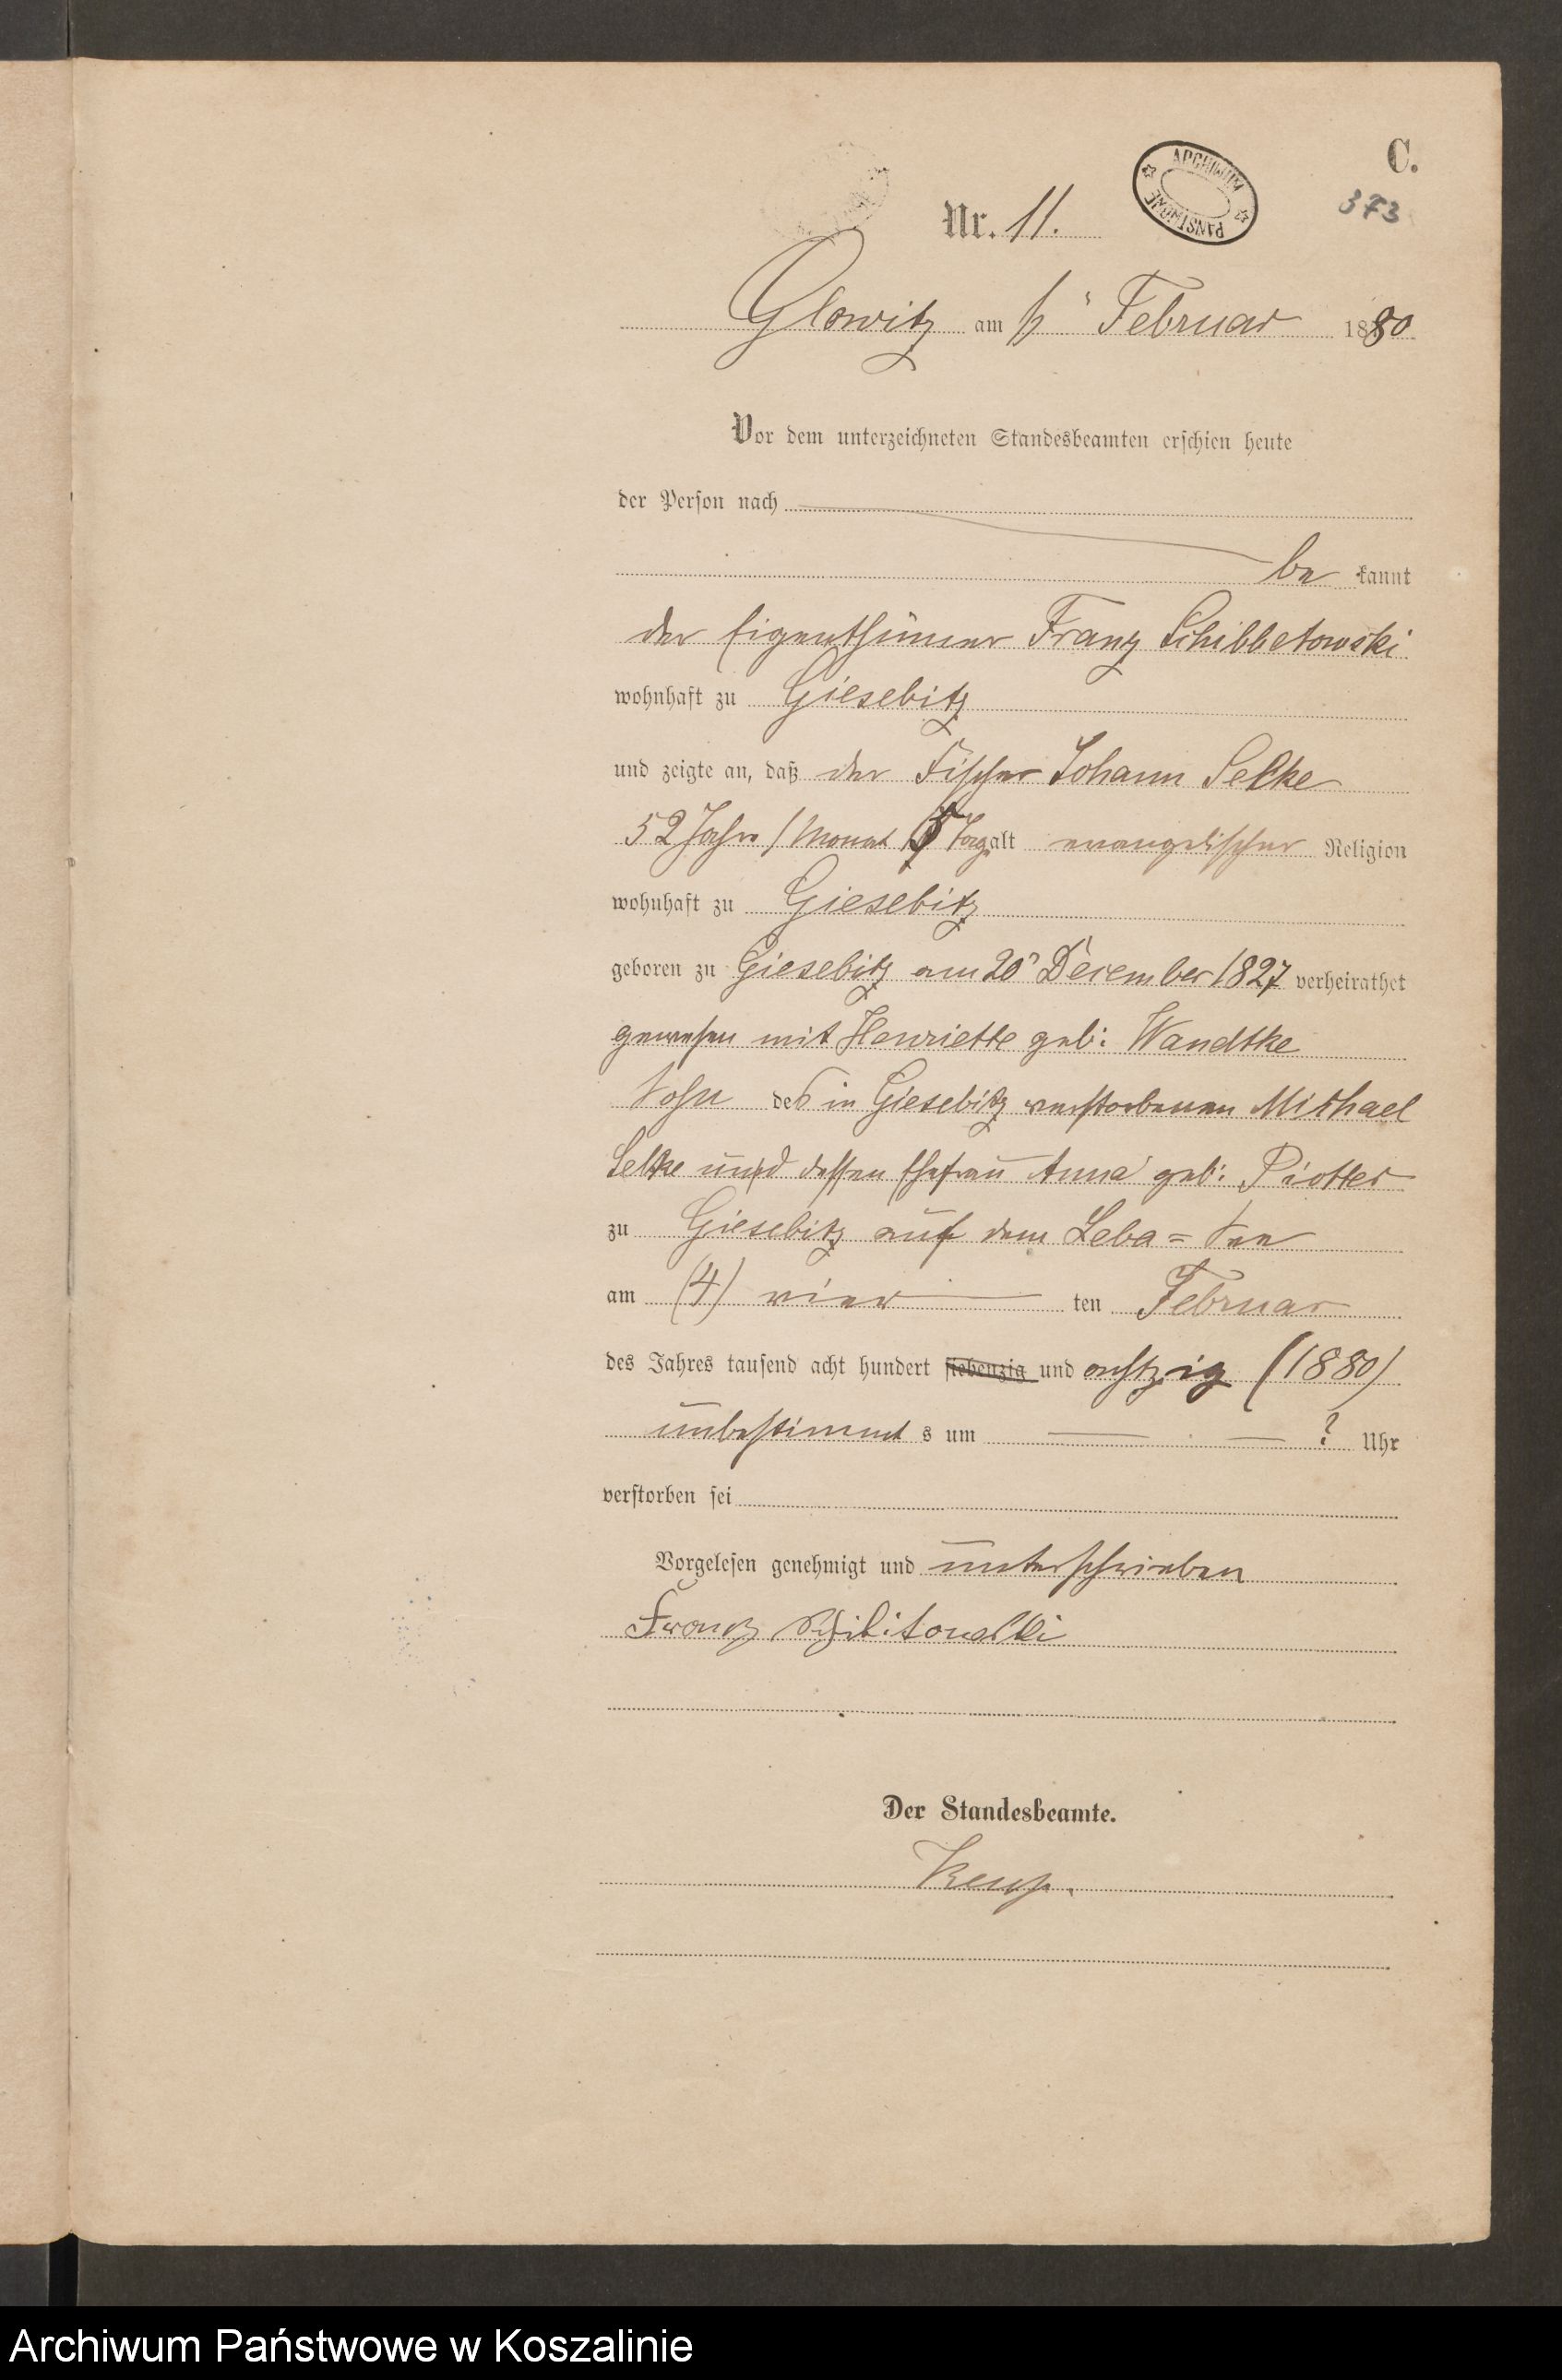 C.
ARCHIWUM PAŃSTWOWE
373
Nr. 11.
Glowitz am 6" Februar 1880
Vor dem unterzeichneten Standesbeamten erschien heute
der Person nach
be kannt
der Eigenthümer Franz Schibbetowski
wohnhaft zu Giesebitz
und zeigte an, daß der Fischer Johann Selke
52 Jahr 1 Monat Tag alt evangelischer Religion
wohnhaft zu Giesebitz
geboren zu Giesebitz am 20" December 1827 verheirathet
gewesen mit Henriette geb: Wandtke
Sohn des in Giesebitz verstorbenen Michael
Selke und dessen Ehefrau Anna geb: Piotter
zu Giesebitz auf dem Leba = See
am (4) vier ten Februar
des Jahres tausend acht hundert siebenzig und achtzig (1880)
unbestimmt s um ? Uhr
verstorben sei
Vorgelesen genehmigt und unterschrieben
Franz Schibitowski
Der Standesbeamte.
Archiwum Państwowe w Koszalinie